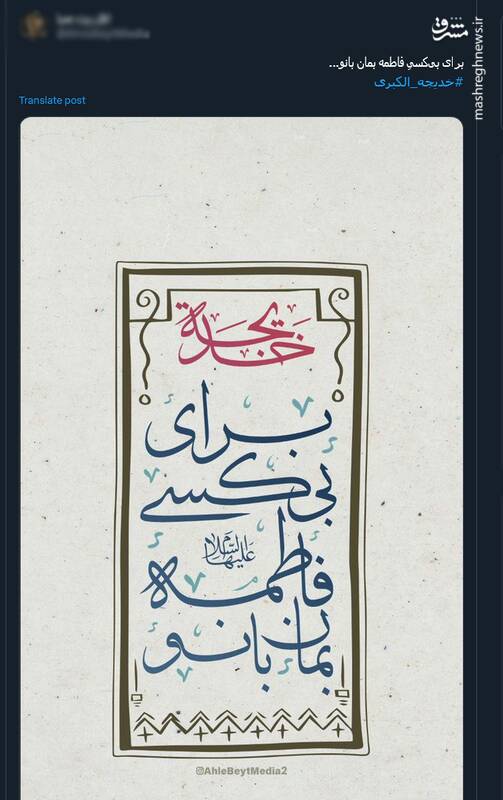 مشرق
mashreghnews.ir
برای بی‌کسیِ فاطمه بمان بانو...
#خدیجه_الکبری
Translate post
خدیجة
برای
بی کسی
علیهاالسلام
فاطمه
بمان بانو
@AhleBeytMedia2